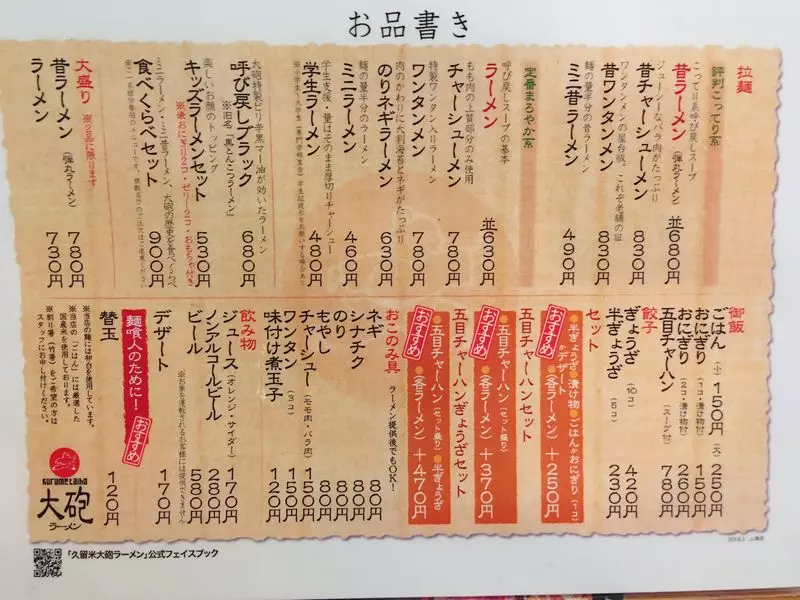 お品書き
拉麺
評判こってり系
こってり系呼び戻しスープ
昔ラーメン (弾丸ラーメン) 並680円
ジューシーなバラ肉がたっぷり
昔チャーシューメン 830円
ワンタンメンの屋台版。これぞ老舗の証
昔ワンタンメン 830円
麺の量半分の昔ラーメン
ミニ昔ラーメン 490円
定番まろやか系
呼び戻しスープの基本
ラーメン 並630円
もも肉の上質部分のみ使用
チャーシューメン 780円
特製ワンタン入りラーメン
ワンタンメン 780円
肉のかわりに大判海苔とネギがたっぷり
のりネギラーメン 630円
麺の量半分のラーメン
ミニラーメン 460円
学生支援・量はそのまま厚切りチャーシュー
学生ラーメン 480円
大砲特製ピリ辛黒マー油が効いたラーメン
呼び戻しブラック 680円
※旧名「黒とんこつラーメン」
楽しいお顔のトッピング
キッズラーメンセット 530円
※俵おにぎり2コ・ゼリー2コ・おもちゃ付き
ミニラーメン・ミニ昔ラーメン、大砲の歴史を食べくらべ
食べくらべセット 900円
大盛り ※2品に限ります
昔ラーメン (弾丸ラーメン) 780円
ラーメン 730円
御飯
ごはん (小) 150円 (大) 250円
おにぎり (1コ・漬け物付) 150円
おにぎり (2コ・漬け物付) 260円
五目チャーハン (スープ付) 780円
餃子
ぎょうざ (10コ) 420円
半ぎょうざ (5コ) 230円
セット
●半ぎょうざ●漬け物●ごはんorおにぎり(1コ)
orデザート
おすすめ ●(各ラーメン)+250円
五目チャーハンセット
●五目チャーハン(セット盛り)
おすすめ ●(各ラーメン)+370円
五目チャーハンぎょうざセット
●五目チャーハン(セット盛り)●半ぎょうざ
おすすめ ●(各ラーメン)+470円
おこのみ具 ラーメン提供後でもOK!
ネギ 80円
シナチク 80円
のり 80円
もやし 80円
チャーシュー (モモ肉・バラ肉) 150円
ワンタン (3コ) 150円
味付け煮玉子 120円
飲み物
ジュース (オレンジ・サイダー) 170円
ノンアルコールビール 280円
ビール 580円
※お車を運転されるお客様には提供できません
デザート 170円
麺食人のために! おすすめ
替玉 120円
※当店の麺には卵白を使用しています。
※当店の「ごはん」には厳選した
国産米を使用しております。
※割り箸(竹箸)をご希望の方は
スタッフにお申し付けください。
Kurume taiho
大砲
ラーメン
「久留米大砲ラーメン」公式フェイスブック